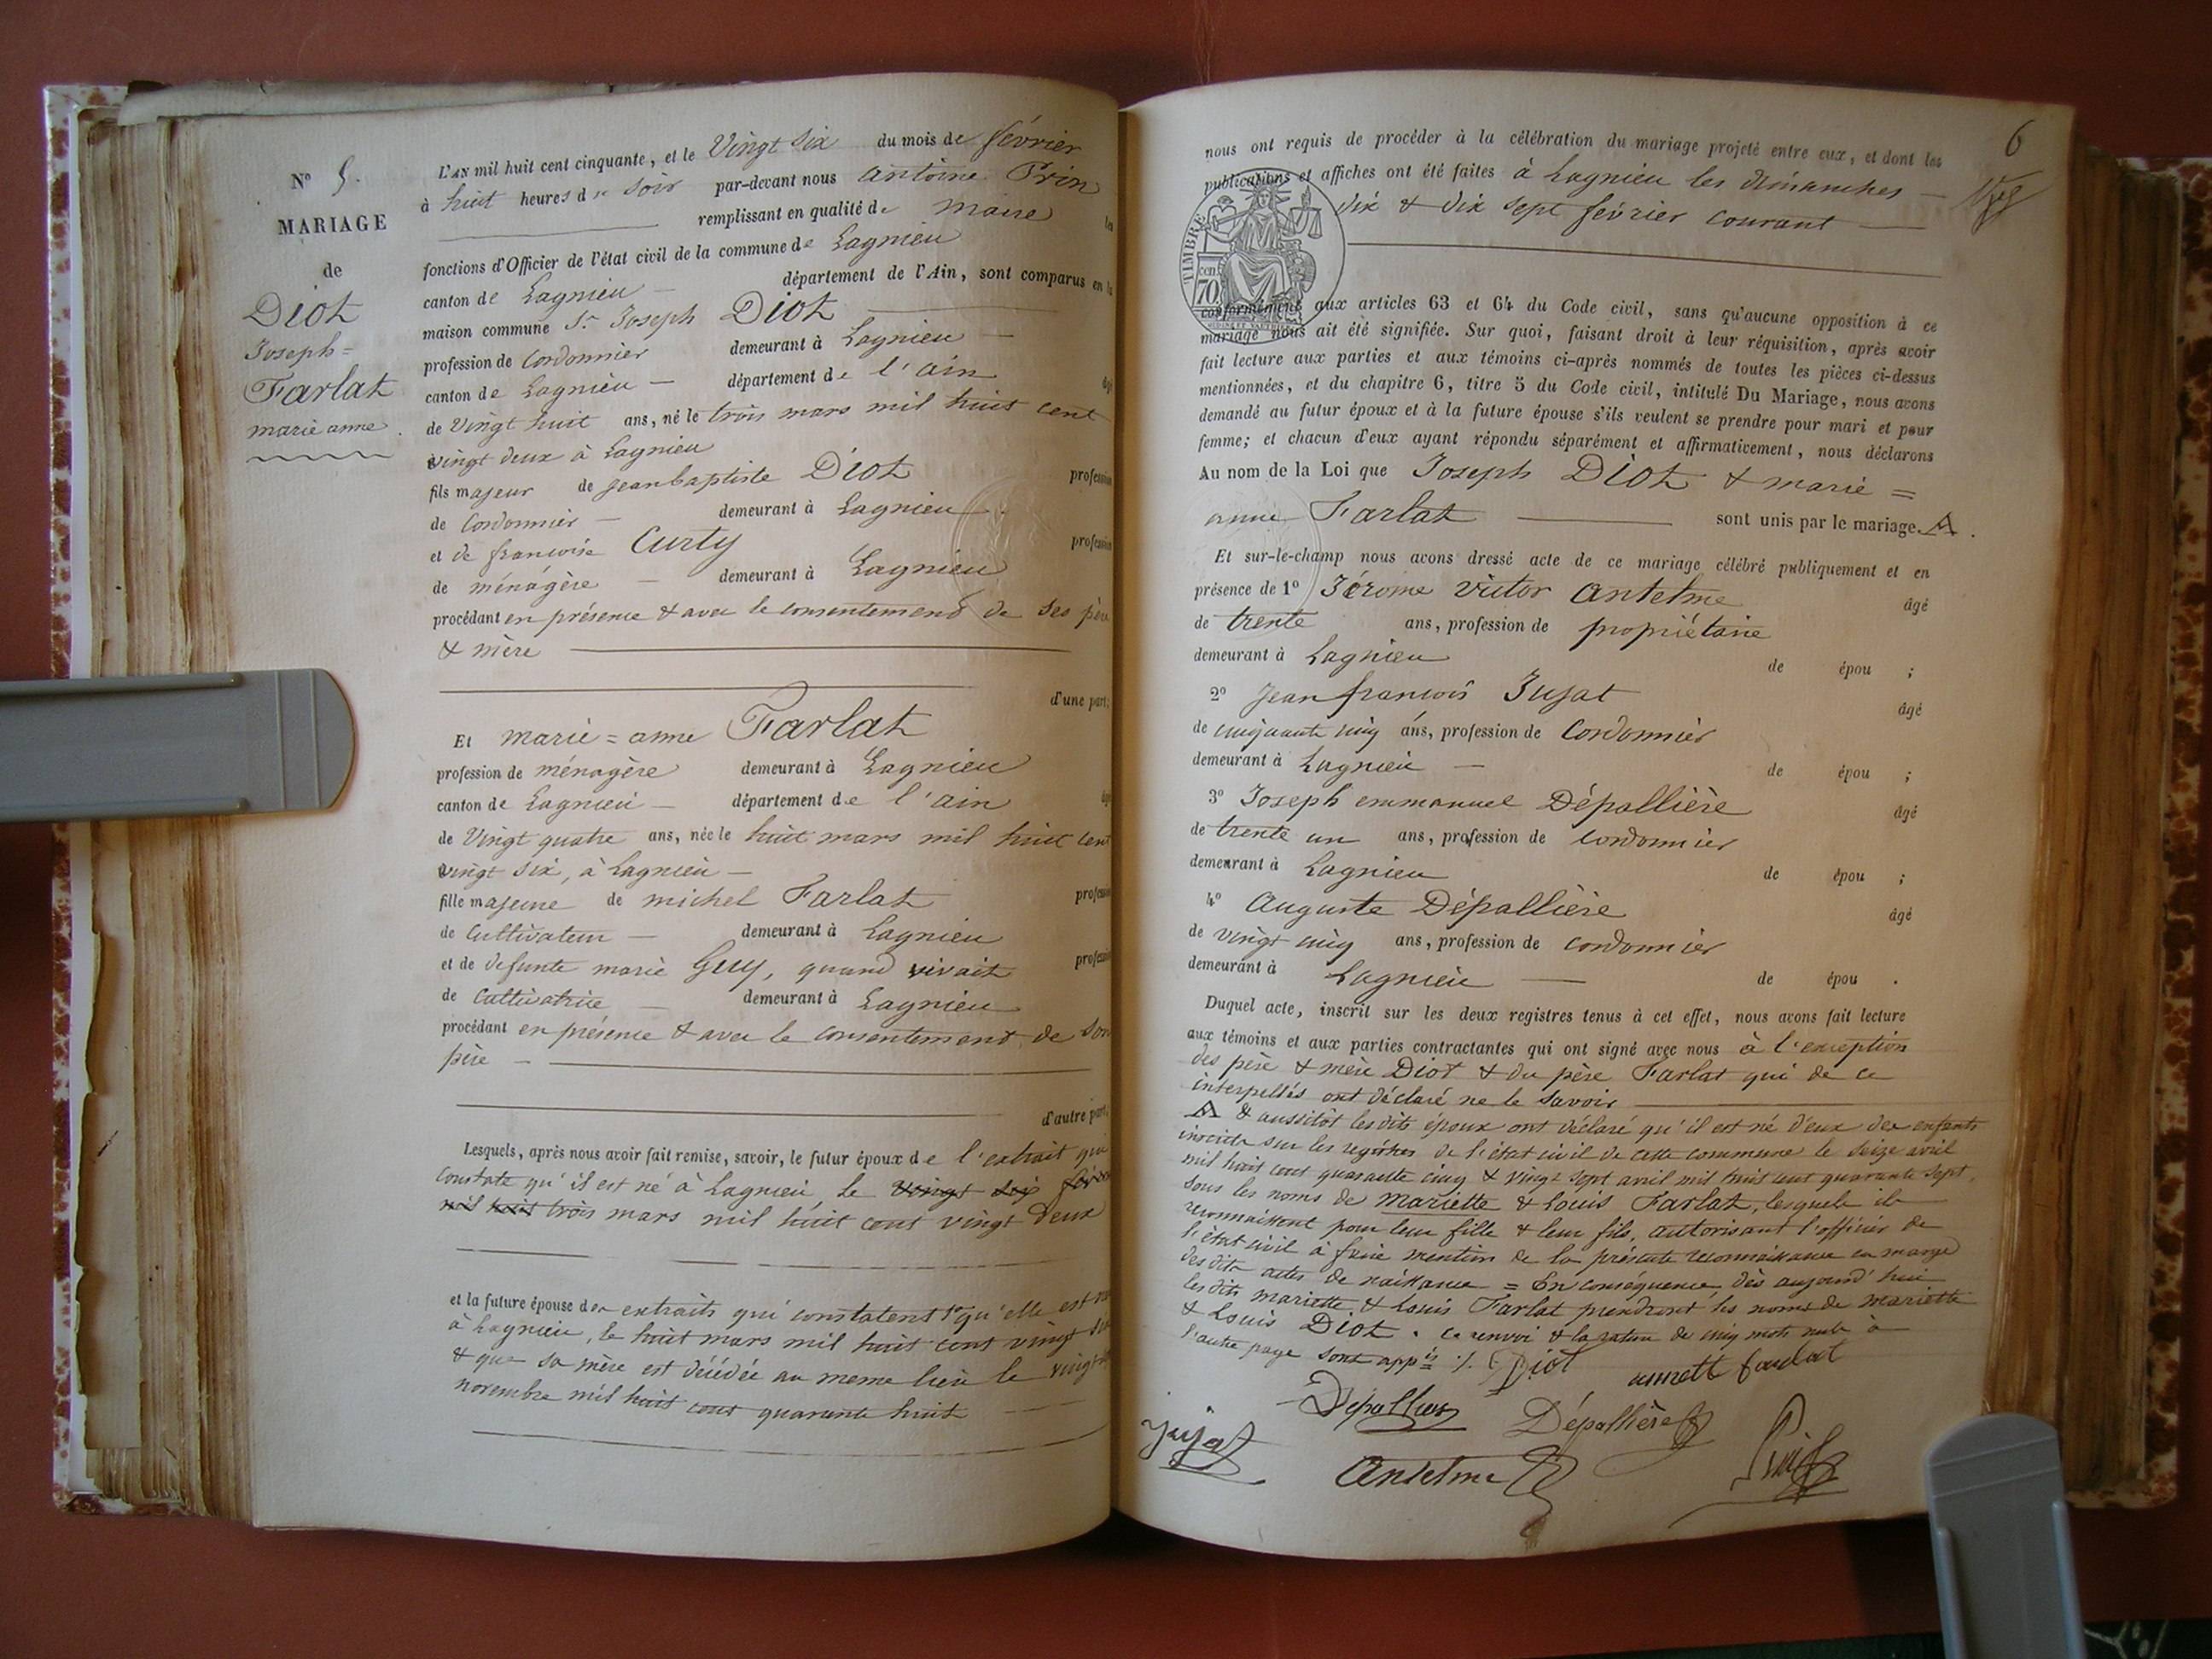 N° 5.
MARIAGE
de
Diot
Joseph =
Farlat
marie anne
L'AN mil huit cent cinquante, et le Vingt six du mois de février
à huit heures du soir par-devant nous antoine Prin
remplissant en qualité de maire les
fonctions d'Officier de l'état civil de la commune de Lagnieu
canton de Lagnieu — département de l'Ain, sont comparus en la
maison commune Sr Joseph Diot
profession de Cordonnier demeurant à Lagnieu —
canton de Lagnieu — département de l'ain âgé
de Vingt huit ans, né le trois mars mil huit cent
vingt deux à Lagnieu
fils majeur de jean baptiste Diot profession
de Cordonnier — demeurant à Lagnieu
et de françoise Curty profession
de ménagère — demeurant à Lagnieu
procédant en présence & avec le consentement de ses père
& mère
d'une part;
Et marie = anne Farlat
profession de ménagère demeurant à Lagnieu
canton de Lagnieu — département de l'ain âgé
de Vingt quatre ans, née le huit mars mil huit cent
vingt six, à Lagnieu —
fille majeure de michel Farlat profession
de Cultivateur — demeurant à Lagnieu
et de defunte marie Guy, quand vivait profession
de Cultivatrice — demeurant à Lagnieu
procédant en présence & avec le consentement de son
père —
d'autre part;
Lesquels, après nous avoir fait remise, savoir, le futur époux de l'extrait qui
constate qu'il est né à Lagnieu, le vingt six février
mil huit trois mars mil huit cent vingt deux
et la future épouse des extraits qui constatent 1° qu'elle est née
à Lagnieu, le huit mars mil huit cent vingt six
& que sa mère est décédée au meme lieu le vingt
novembre mil huit cent quarante huit
6
nous ont requis de procéder à la célébration du mariage projeté entre eux, et dont les
publications et affiches ont été faites à Lagnieu les dimanches —
dix & dix sept février courant —
TIMBRE
70 cen
conformément aux articles 63 et 64 du Code civil, sans qu'aucune opposition à ce
mariage nous ait été signifiée. Sur quoi, faisant droit à leur réquisition, après avoir
fait lecture aux parties et aux témoins ci-après nommés de toutes les pièces ci-dessus
mentionnées, et du chapitre 6, titre 5 du Code civil, intitulé Du Mariage, nous avons
demandé au futur époux et à la future épouse s'ils veulent se prendre pour mari et pour
femme; et chacun d'eux ayant répondu séparément et affirmativement, nous déclarons
Au nom de la Loi que Joseph Diot & marie =
anne Farlat — sont unis par le mariage. A.
Et sur-le-champ nous avons dressé acte de ce mariage célébré publiquement et en
présence de 1° Jérome Victor Antelme âgé
de trente ans, profession de propriétaire
demeurant à Lagnieu de épou ;
2° Jean françois Jujat âgé
de cinquante cinq ans, profession de Cordonnier
demeurant à Lagnieu — de épou ;
3° Joseph emmanuel Dépallière âgé
de trente un ans, profession de Cordonnier
demeurant à Lagnieu de épou ;
4° Auguste Dépallière âgé
de vingt cinq ans, profession de cordonnier
demeurant à Lagnieu — de épou .
Duquel acte, inscrit sur les deux registres tenus à cet effet, nous avons fait lecture
aux témoins et aux parties contractantes qui ont signé avec nous à l'exception
des père & mère Diot & du père Farlat qui de ce
interpellés ont déclaré ne le savoir
A & aussitôt lesdits époux ont déclaré qu'il est né d'eux des enfants
inscrits sur les registres de l'état civil de cette commune le seize avril
mil huit cent quarante cinq & vingt sept avril mil huit cent quarante sept,
sous les noms de Mariette & Louis Farlat, lesquels ils
reconnaissent pour leur fille & leur fils, autorisant l'officier de
l'état civil à faire mention de la présente reconnaissance en marge
desdits actes de naissance = En conséquence, dès aujourd'hui
lesdits mariette & Louis Farlat prendront les noms de mariette
& Louis Diot. Ce renvoi & la rature de cinq mots nuls à
l'autre page sont appés ./. Diot annette farlat
Dépallière Dépallière
Jujat Antelme Prin